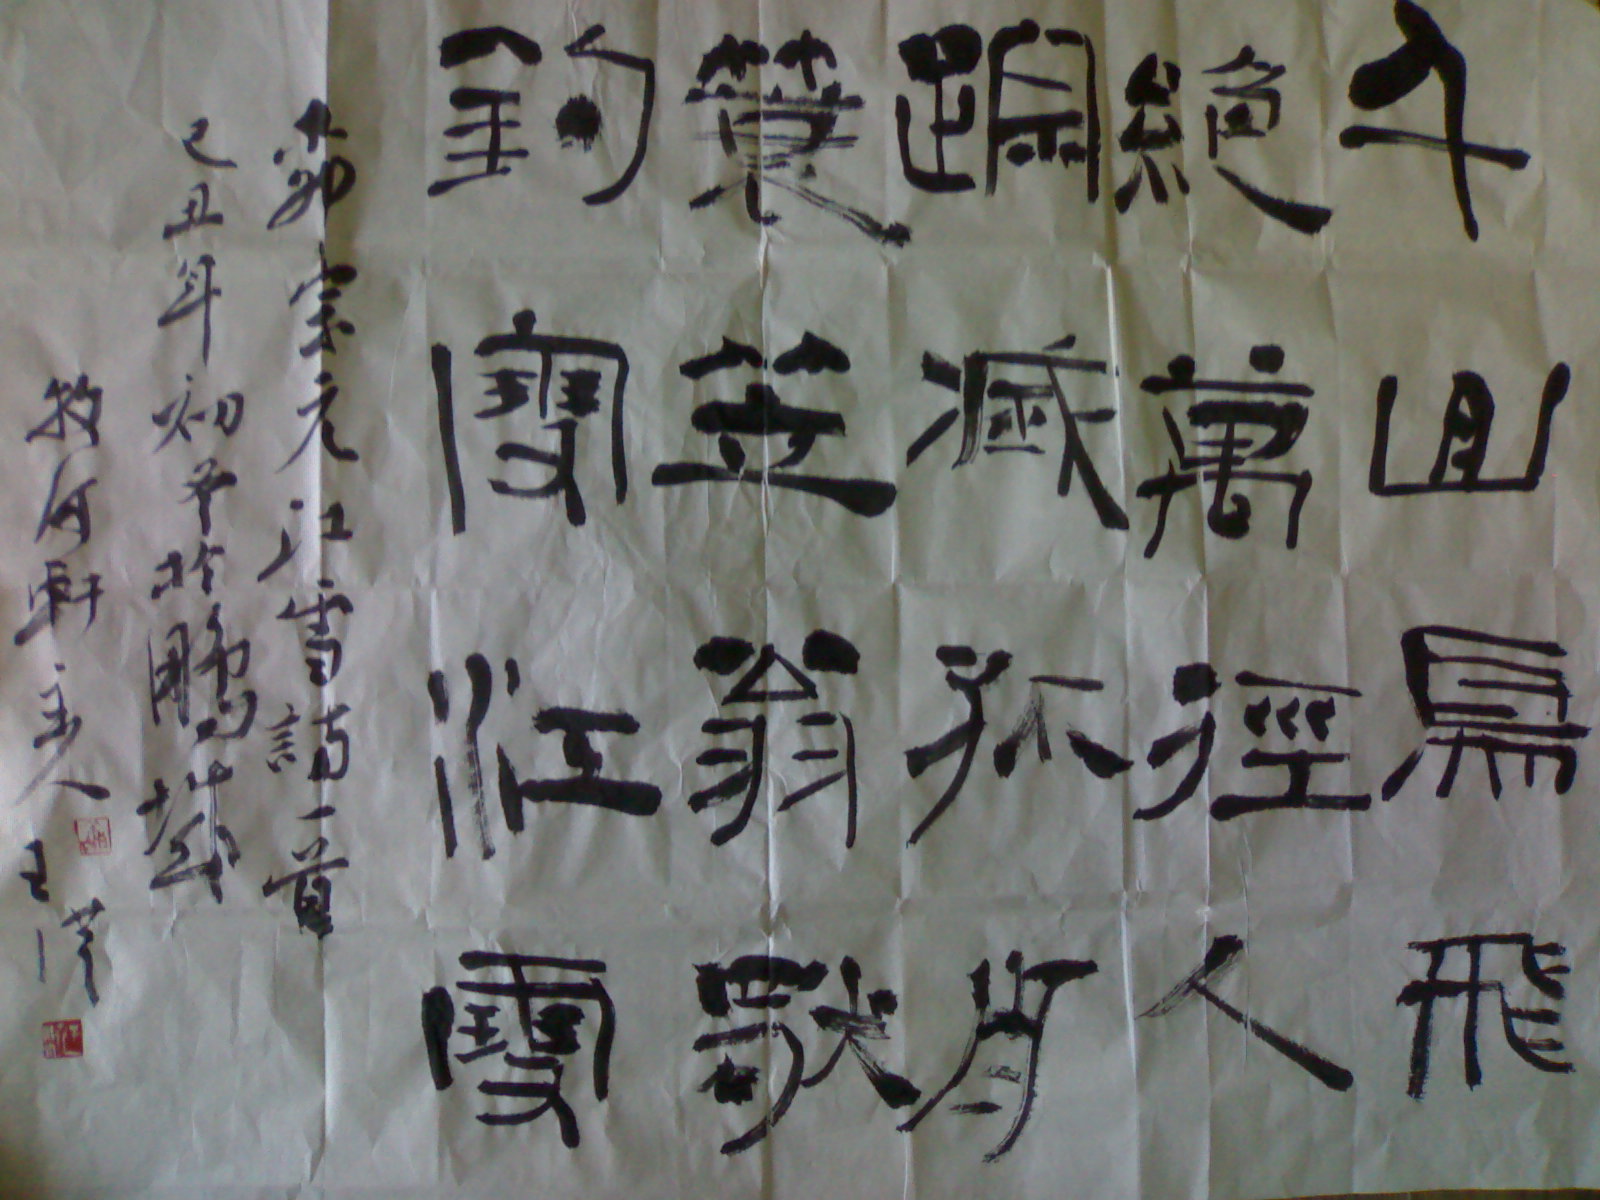 千山鳥飛
絕萬徑人
踪滅孤舟
蓑笠翁獨
釣寒江雪
柳宗元江雪詩一首
己丑年初冬於鵬城
牧河軒主人 王